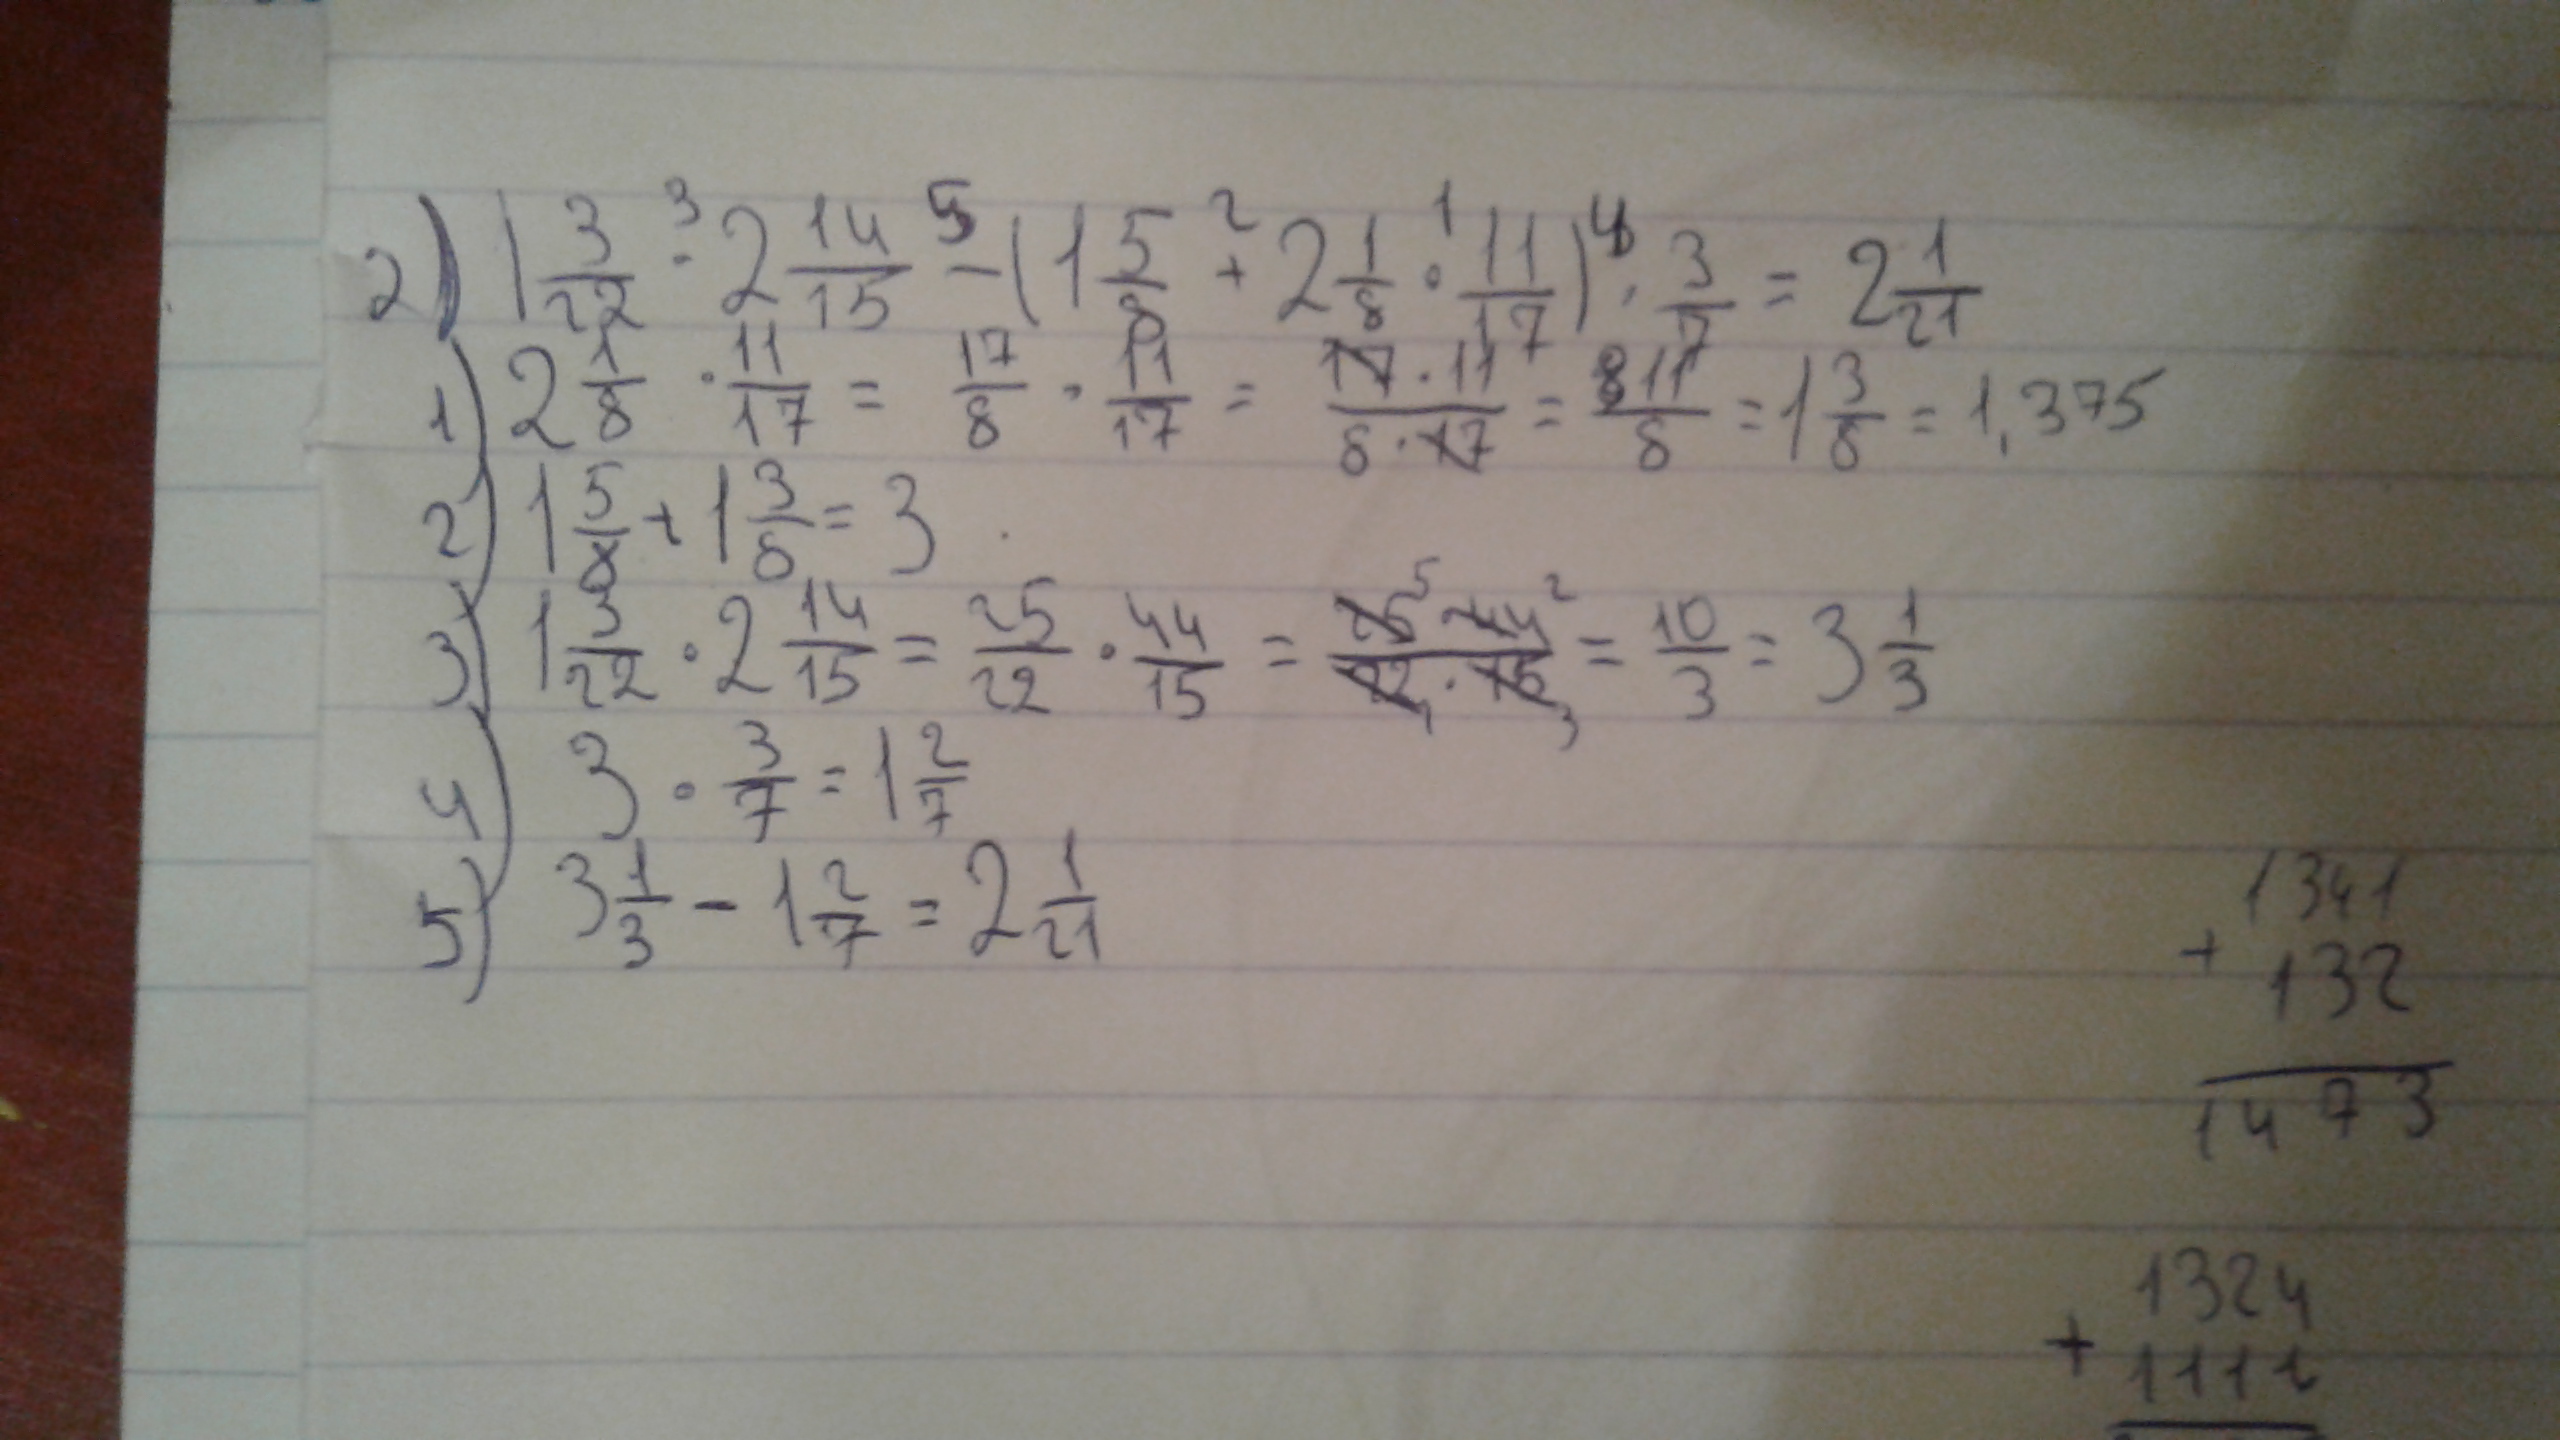 2) 1 3/22 · 2 14/15 - (1 5/8 + 2 1/8 · 11/17) · 3/7 = 2 1/21
3 5 2 1 4
1) 2 1/8 · 11/17 = 17/8 · 11/17 = 17·11/8·17 = 11/8 = 1 3/8 = 1,375
2) 1 5/8 + 1 3/8 = 3
3) 1 3/22 · 2 14/15 = 25/22 · 44/15 = 25 5 44 2/22 1 · 15 3 = 10/3 = 3 1/3
4) 3 · 3/7 = 1 2/7
5) 3 1/3 - 1 2/7 = 2 1/21
1341
+ 132
1473
1324
+